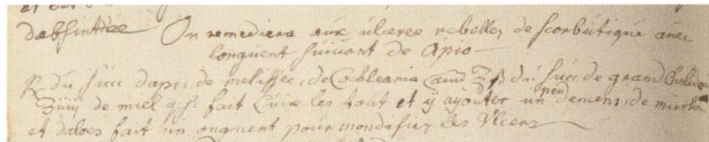 dabsinthe On remediera aux ulceres rebelles de scorbutique avec
longuent suivant de Apio
R du succ dapii, de melisse, de Coclearia du succ de grand
de miel q.s. fait Cuire les tout et y ajouter un peu dencens, de mirrhe
et daloes fait un onguent pour mondifier les Ulceres